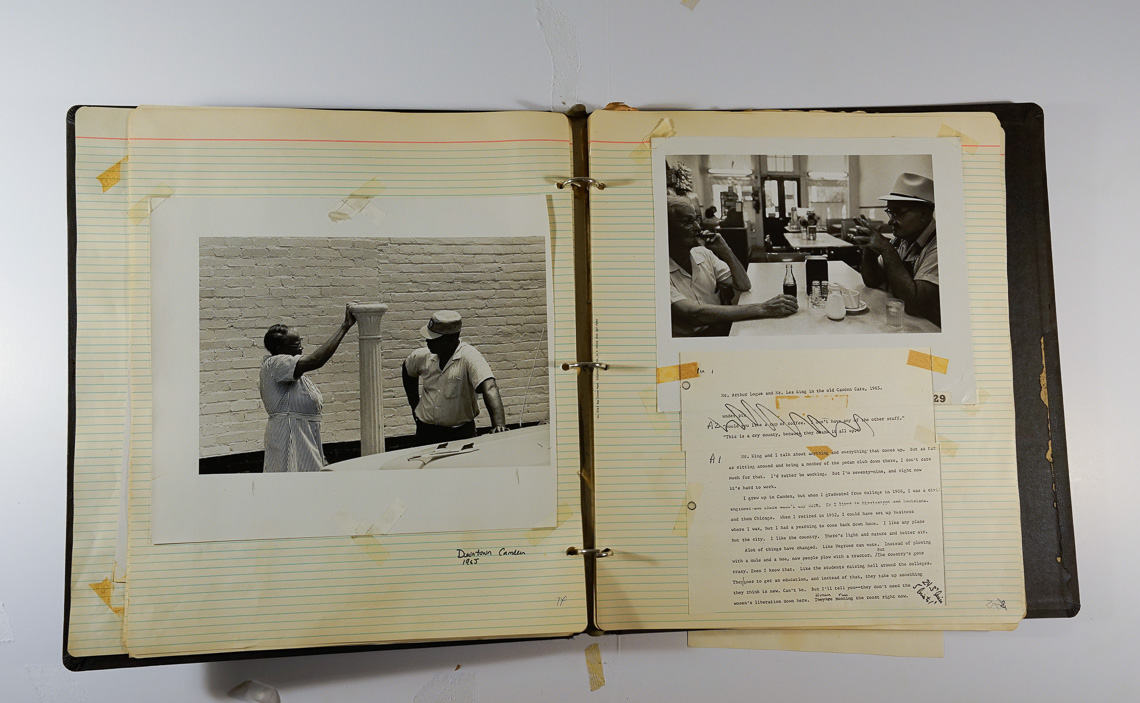 Downtown Camden
1965
29
Mr. Arthur Logue and Mr. Lee King in the old Camden Cafe, 1965.
"Would you like a cup of coffee. I don't have any of the other stuff."
"This is a dry county, because they drank it all up."
A1
Mr. King and I talk about anything and everything that comes up. But as far
as sitting around and being a member of the pecan club down there, I don't care
much for that. I'd rather be working. But I'm seventy-nine, and right now
it's hard to work.
I grew up in Camden, but when I graduated from college in 1908, I was a civil
engineer and there wasn't any work. So I lived in Mississippi and Louisiana,
and then Chicago. When I retired in 1952, I could have set up business
where I was, but I had a yearning to come back down home. I like any place
but the city. I like the country. There's light and nature and better air.
Alot of things have changed. Like Negroes can vote. Instead of plowing
with a mule and a hoe, now people plow with a tractor. But The country's gone
crazy. Even I know that. Like the students raising hell around the colleges.
They used to get an education, and instead of that, they take up something
they think is new. Can't be. But I'll tell you--they don't need the
women's liberation down here. They're running the roost right now.